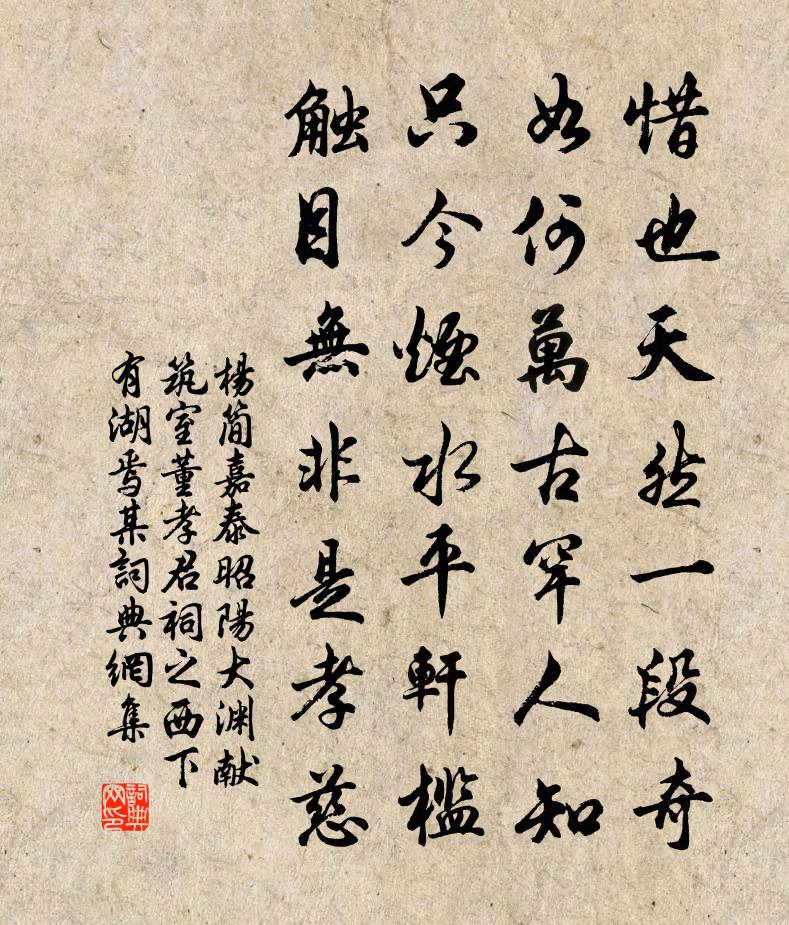 惜也天然一段奇
如何萬古罕人知
只今煙水平軒檻
触目無非是孝慈
楊简嘉泰昭陽大渊献
筑室董孝君祠之西下
有湖焉某詞典網集
詞典網印